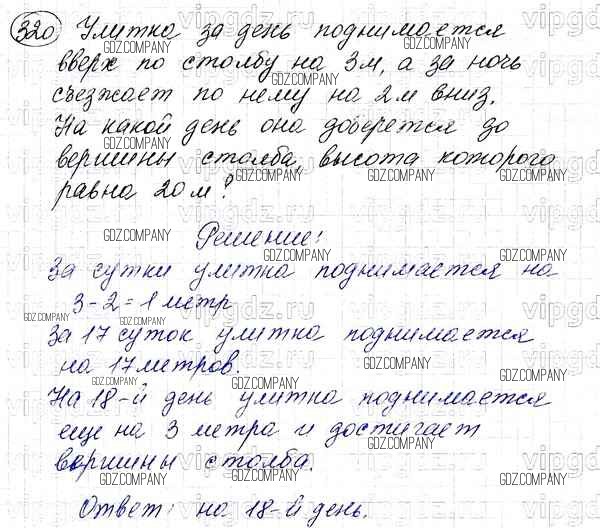 320 Улитка за день поднимается
вверх по столбу на 3м, а за ночь
съезжает по нему на 2м вниз.
На какой день она доберется до
вершины столба, высота которого
равна 20м?
Решение:
За сутки улитка поднимается на
3-2=1 метр
За 17 суток улитка поднимается
на 17 метров.
На 18-й день улитка поднимается
еще на 3 метра и достигает
вершины столба.
Ответ: на 18-й день.